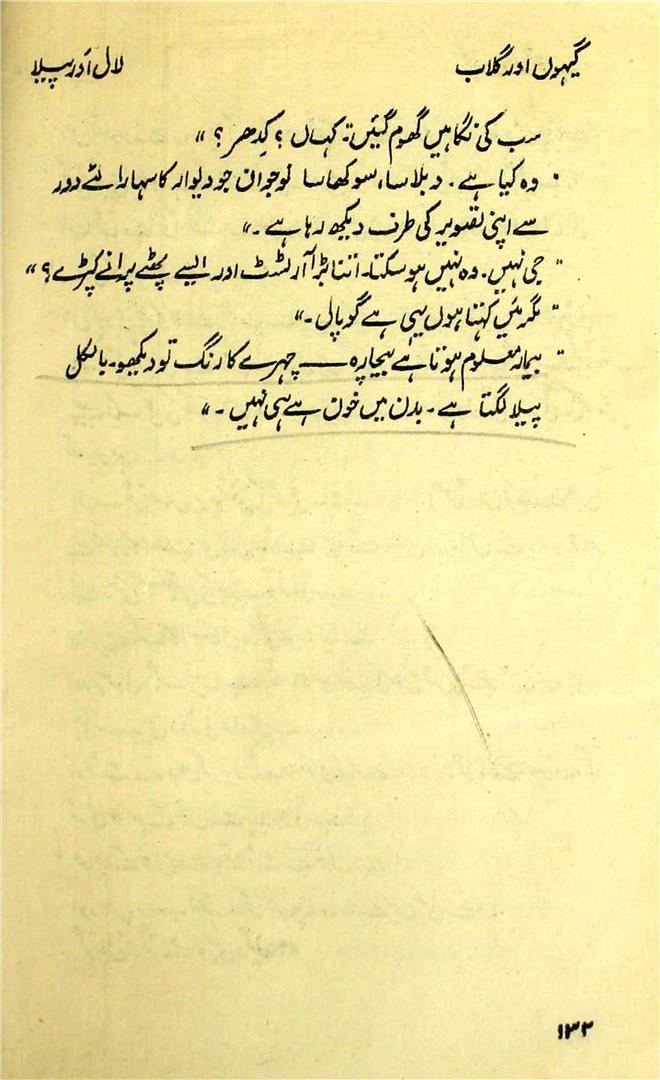 گیہوں اور گلاب
لال اور پیلا
سب کی نگاہیں گھوم گئیں۔ کہاں؟ کِدھر؟"
"وہ کیا ہے۔ دبلا سا، سوکھا سا نوجوان جو دیوار کا سہارا لئے دور
سے اپنی تصویر کی طرف دیکھ رہا ہے۔"
"جی نہیں۔ وہ نہیں ہو سکتا۔ اتنا بڑا آرٹسٹ اور ایسے پھٹے پرانے کپڑے؟"
"مگر میں کہتا ہوں یہی ہے گوپال۔"
"بیمار معلوم ہوتا ہے بیچارہ —— چہرے کا رنگ تو دیکھو۔ بالکل
پیلا لگتا ہے۔ بدن میں خون ہے ہی نہیں۔"
۱۳۲